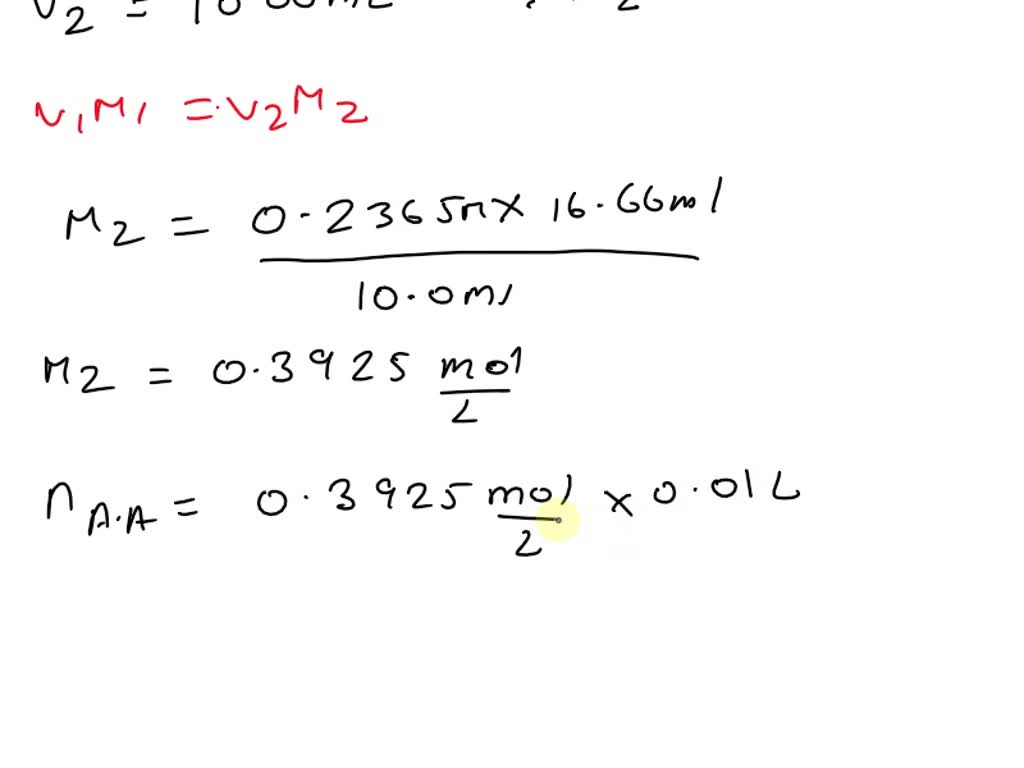 V2 = 10.00mL
V1M1 = V2M2
M2 = 0.2365M X 16.66ml
10.0ml
M2 = 0.3925 mol
L
nA.A = 0.3925 mol x 0.01 L
2